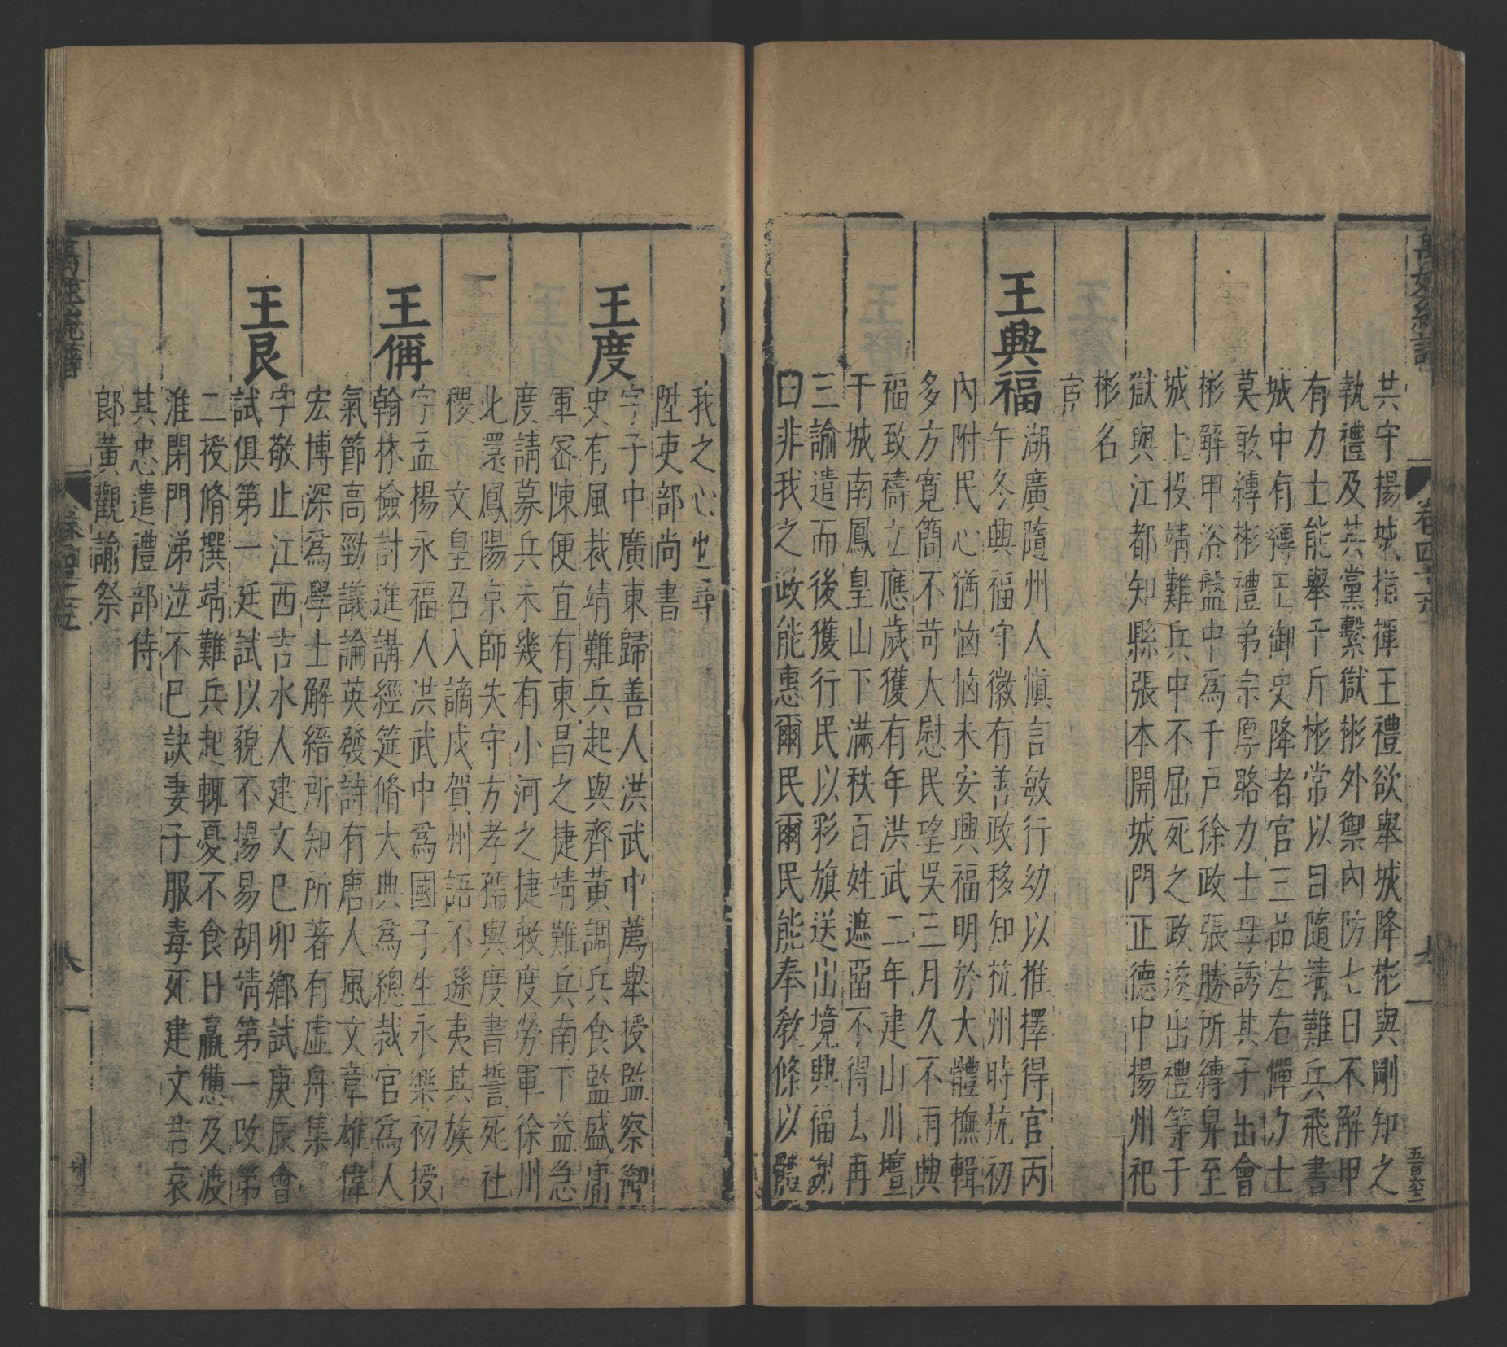 萬姓統譜
卷四十五
七
共守揚城指揮王禮欲舉城降彬與剛知之
執禮及其黨繫獄彬外禦內防七日不解甲
有力士能舉千斤彬常以自隨靖難兵飛書
城中有縛王御史降者官三品左右憚力士
莫敢縛彬禮弟宗厚賂力士母誘其子出會
彬解甲浴盤中為千戶徐政張勝所縛舁至
城上投靖難兵中不屈死之政遂出禮等于
獄與江都知縣張本開城門正德中揚州祀
彬名
宦
王興福
湖廣隨州人慎言敏行幼以推擇得官丙
午冬興福守徽有善政移知杭州時杭初
內附民心猶恟恟未安興福明於大體撫輯
多方寬簡不苛人大慰民望吳三月久不雨興
福致禱立應歲獲有年洪武二年建山川壇
于城南鳳皇山下滿秩百姓遮畱不得去再
三諭遣而後獲行民以彩旗送出境興福謝
曰非我之政能惠爾民爾民能奉教條以體
我之心也尋
陞吏部尚書
王度
字子中廣東歸善人洪武中薦舉授監察御
史有風裁靖難兵起與齊黃調兵食監盛庸
軍密陳便宜有東昌之捷靖難兵南下益急
度請募兵未幾有小河之捷敕度勞軍徐州
北還鳳陽京師失守方孝孺與度書誓死社
稷 文皇召入謫戍賀州語不遜夷其族
王偁
字孟揚永福人洪武中為國子生永樂初授
翰林檢討進講經筵脩大典為總裁官為人
氣節高勁議論英發詩有唐人風文章雄偉
宏博深為學士解縉所知所著有虛舟集
王艮
字敬止江西吉水人建文己卯鄉試庚辰會
試俱第一廷試以貌不揚易胡靖第一改第
二授脩撰靖難兵起輒憂不食日羸憊及渡
淮閉門涕泣不已訣妻子服毒死建文君哀
其忠遣禮部侍
郎黃觀諭祭
萬姓統譜
卷四十五
八